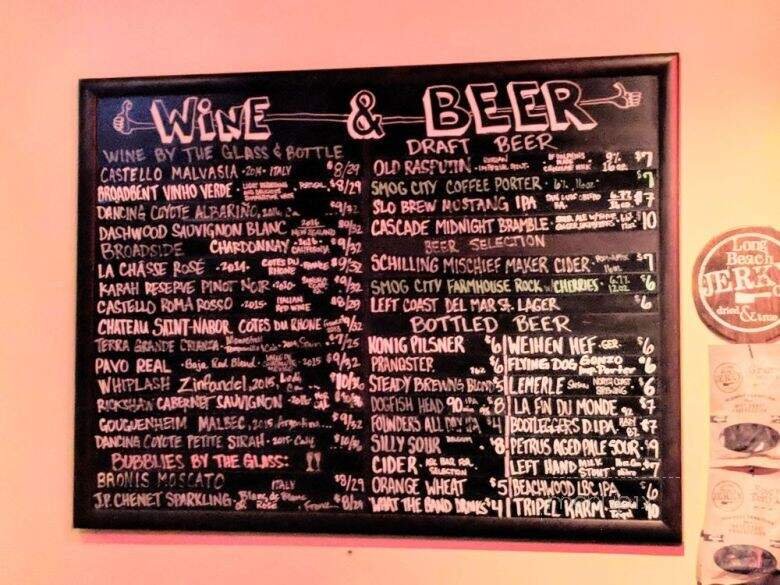 WINE & BEER
WINE BY THE GLASS & BOTTLE
CASTELLO MALVASIA · 2014 · ITALY $8/29
BROADBENT VINHO VERDE · PORTUGAL $8/29
DANCING COYOTE ALBARIÑO, $9/32
DASHWOOD SAUVIGNON BLANC 2016 NEW ZEALAND $9/32
BROADSIDE CHARDONNAY 2016 CALIFORNIA $9/32
LA CHASSE ROSÉ · 2014 · COTES DU RHONE · FRANCE $9/32
KARAH RESERVE PINOT NOIR · $9/32
CASTELLO ROMA ROSSO · 2015 · ITALIAN RED WINE $8/29
CHATEAU SAINT-NABOR COTES DU RHONE $9/32
TERRA GRANDE CRIANZA · Spain $7/25
PAVO REAL · Baja Red Blend · 2015 $9/32
WHIPLASH Zinfandel, 2015, Lodi $10/36
RICKSHAW CABERNET SAUVIGNON $10/36
GOUGUENHEIM MALBEC, 2015 Argentina $9/32
DANCING COYOTE PETITE SIRAH · 2015 $10/36
BUBBLIES BY THE GLASS:
BRONIS MOSCATO ITALY $8/29
J.P. CHENET SPARKLING · Blanc de Blanc or ROSÉ · France $8/29
DRAFT BEER
OLD RASPUTIN · RUSSIAN IMPERIAL STOUT · 9% 16oz $7
SMOG CITY COFFEE PORTER · 6%, 16oz $7
SLO BREW MUSTANG IPA $7
CASCADE MIDNIGHT BRAMBLE $10
BEER SELECTION
SCHILLING MISCHIEF MAKER CIDER $7
SMOG CITY FARMHOUSE ROCK w/ CHERRIES · 12oz $6
LEFT COAST DEL MAR ST. LAGER $6
BOTTLED BEER
KONIG PILSNER $6
PRANQSTER $6
STEADY BREWING BLOND $5
DOGFISH HEAD 90 IPA $8
FOUNDERS ALL DAY IPA $4
SILLY SOUR BELGIUM $8
CIDER · ASK BAR FOR SELECTION
ORANGE WHEAT $5
WHAT THE BAND DRINKS $4
WEIHEN HEF · GER. $6
FLYING DOG Gonzo Imp. Porter $6
LEMERLE Saison NORTH COAST BREWING $6
LA FIN DU MONDE $7
BOOTLEGGERS D.IPA $7
PETRUS AGED PALE SOUR $9
LEFT HAND MILK STOUT $7
BEACHWOOD LBC IPA $6
TRIPEL KARM. $10
Long Beach
JERKY
dried & true